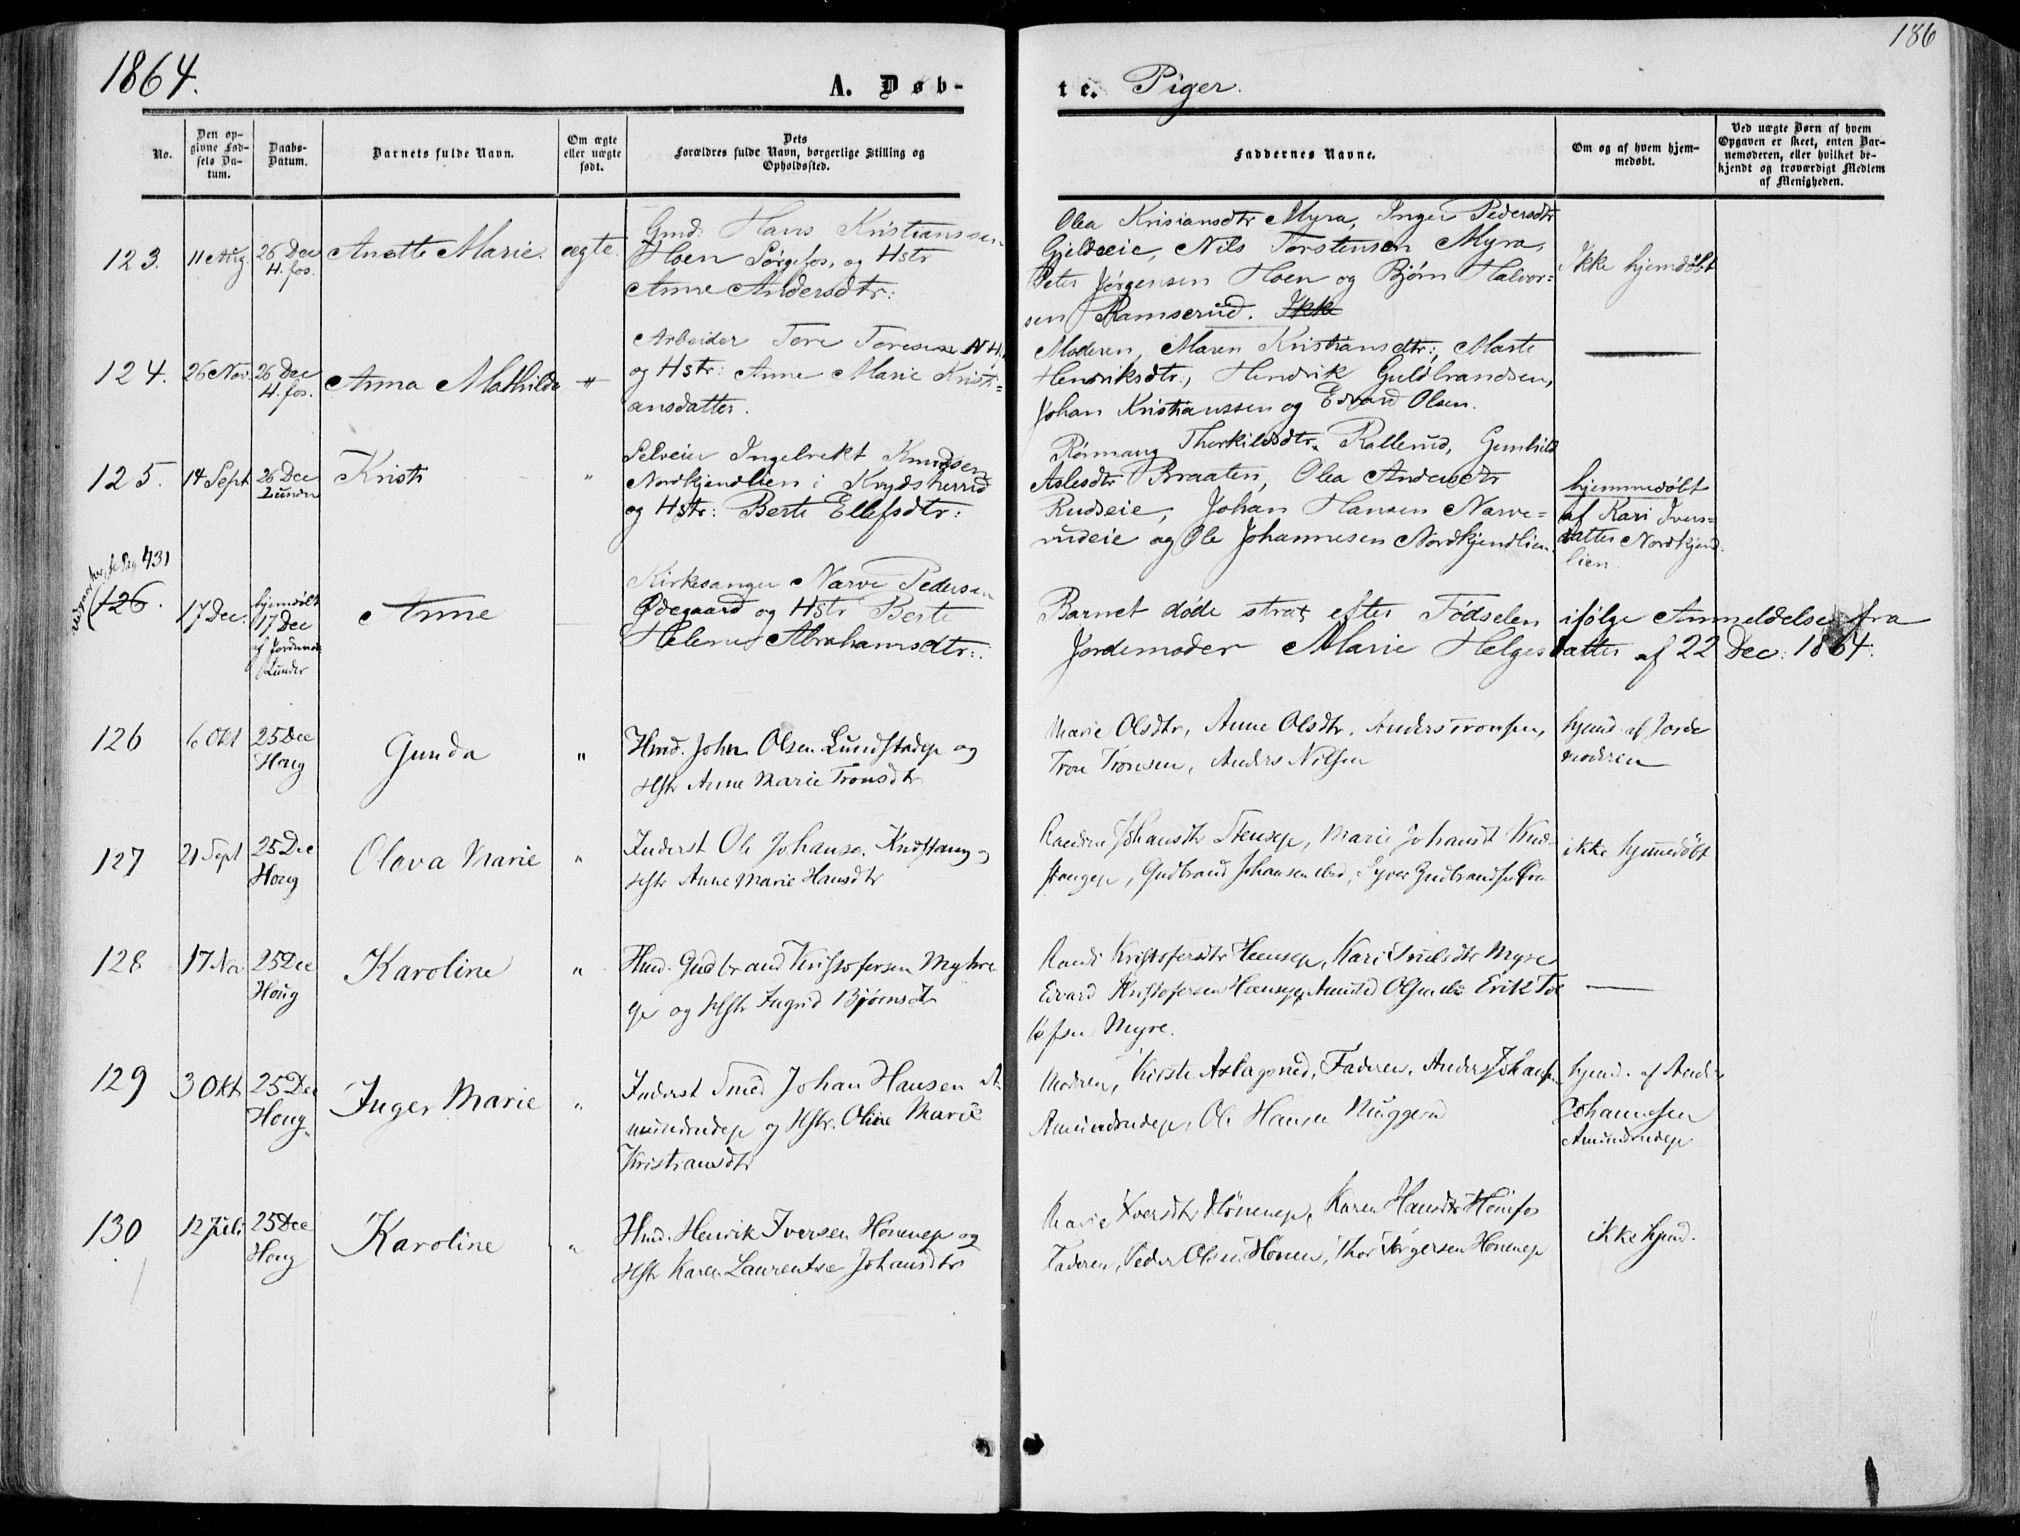 1864.
A. Døb-
te. Piger.
186
No.
Den op-
givne Fød-
sels Da-
tum.
Daabs-
Datum.
Barnets fulde Navn.
Om ægte
eller uægte
født.
Dets
Forældres fulde Navn, borgerlige Stilling og
Opholdssted.
Faddernes Navne.
Om og af hvem hjem-
medøbt.
Ved uægte Børn af hvem
Opgaven er skeet, enten Bar-
nemoderen, eller hvilket be-
kjendt og troværdigt Medlem
af Menigheden.
123. 11 Aug. 26 Dec
H. fos.
Anette Marie. ægte.
Gmd. Hans Kristianssen
Hoen Sørgefos, og Hstr
Anne Andersdtr:
Olea Krisiansdtr Myra, Inger Pedersdtr
Gjeldseie, Nils Torstensen Myra,
Peter Jørgensen Hoen og Bjørn Halvor=
sen Ramserud. Ikke
Ikke hjemdøbt
124. 26 Nov. 26 Dec
H. fos.
Anna Mathilde
Arbeider Tore Toresen
og Hstr: Anne Marie Kristi=
ansdatter.
Moderen, Maren Kristiansdtr:, Marte
Henriksdtr., Hendrik Guldbrandsen,
Johan Kristianssen og Edvard Olsen.
125. 14 Sept 26 Dec
Lunder
Kristi "
Selveier Ingebrekt Knudsen
Nordkjendlien i Krydsherred
og Hstr: Berte Ellefsdtr:
Rønnaug Thorkildsdtr. Rallerud, Gunhild
Aslesdtr Braaten, Olea Andersdtr
Rudseie, Johan Hansen Narve=
rudeie og Ole Johannesen Nordkjendlien.
hjemmedøbt
af Kari Ivers=
datter Nordkjend
lien.
431
126. 17 Dec. hjemdøbt
17 Dec
af Jordmod
Lunder
Anne
Kirkesanger Narve Pedersen
Ødegaard og Hstr Berte
Helene Abrahamsdtr:.
Barnet døde strax efter Fødselen ifølge Anmeldelse fra
Jordemoder Marie Helgesdatter af 22 Dec: 1864.
126 6 Okt 25 Dec
Houg
Gunda "
Hmd. John Olsen Lundstadep og
Hstr Anne Marie Tronsdtr
Marie Olsdtr, Anne Olsdtr, Anders Tronsen,
Tron Tronsen, Anders Nilsen
hjemd af Jorde
moderen
127 21 Sept 25 Dec
Houg
Olava Marie "
Inderst Ole Johanse.
Hstr Anne Marie Hansdtr
Johansdtr Stensep, Marie Johansdt
Gudbrand Johansen
ikke hjemmedøbt
128 17 Nov 25 Dec
Houg
Karoline "
Hmd. Gudbrand Kristofersen Myhre
og Hstr Ingrid Bjørnsdtr
Randi Kristofersdtr Heensep, Kari Myre
Edvard Kristofersen Heensep, Amund Olsen Erik To
lefsen Myre.
129 3 Okt 25 Dec
Houg.
Inger Marie "
Inderst Smed Johan Hansen A
mundrudep og Hstr. Oline Marie
Kristiansdtr
Modren, Kirsti Aslagsrud, Faderen, Anders Johans
Amundrudep, Ole Hansen Muggerud
hjemd. af Anders
Johannesen
Amundrudep
130 12 Juli 25 Dec
Houg
Karoline "
Hmd. Henrik Iversen Hønenep og
Hstr Karen Laurentse Johansdtr
Marie Iversdtr Hønenep, Karen Hansdtr Hønefos
Faderen, Peder Olsen Hønen, Thor Jørgensen Hønenep
ikke hjemd.